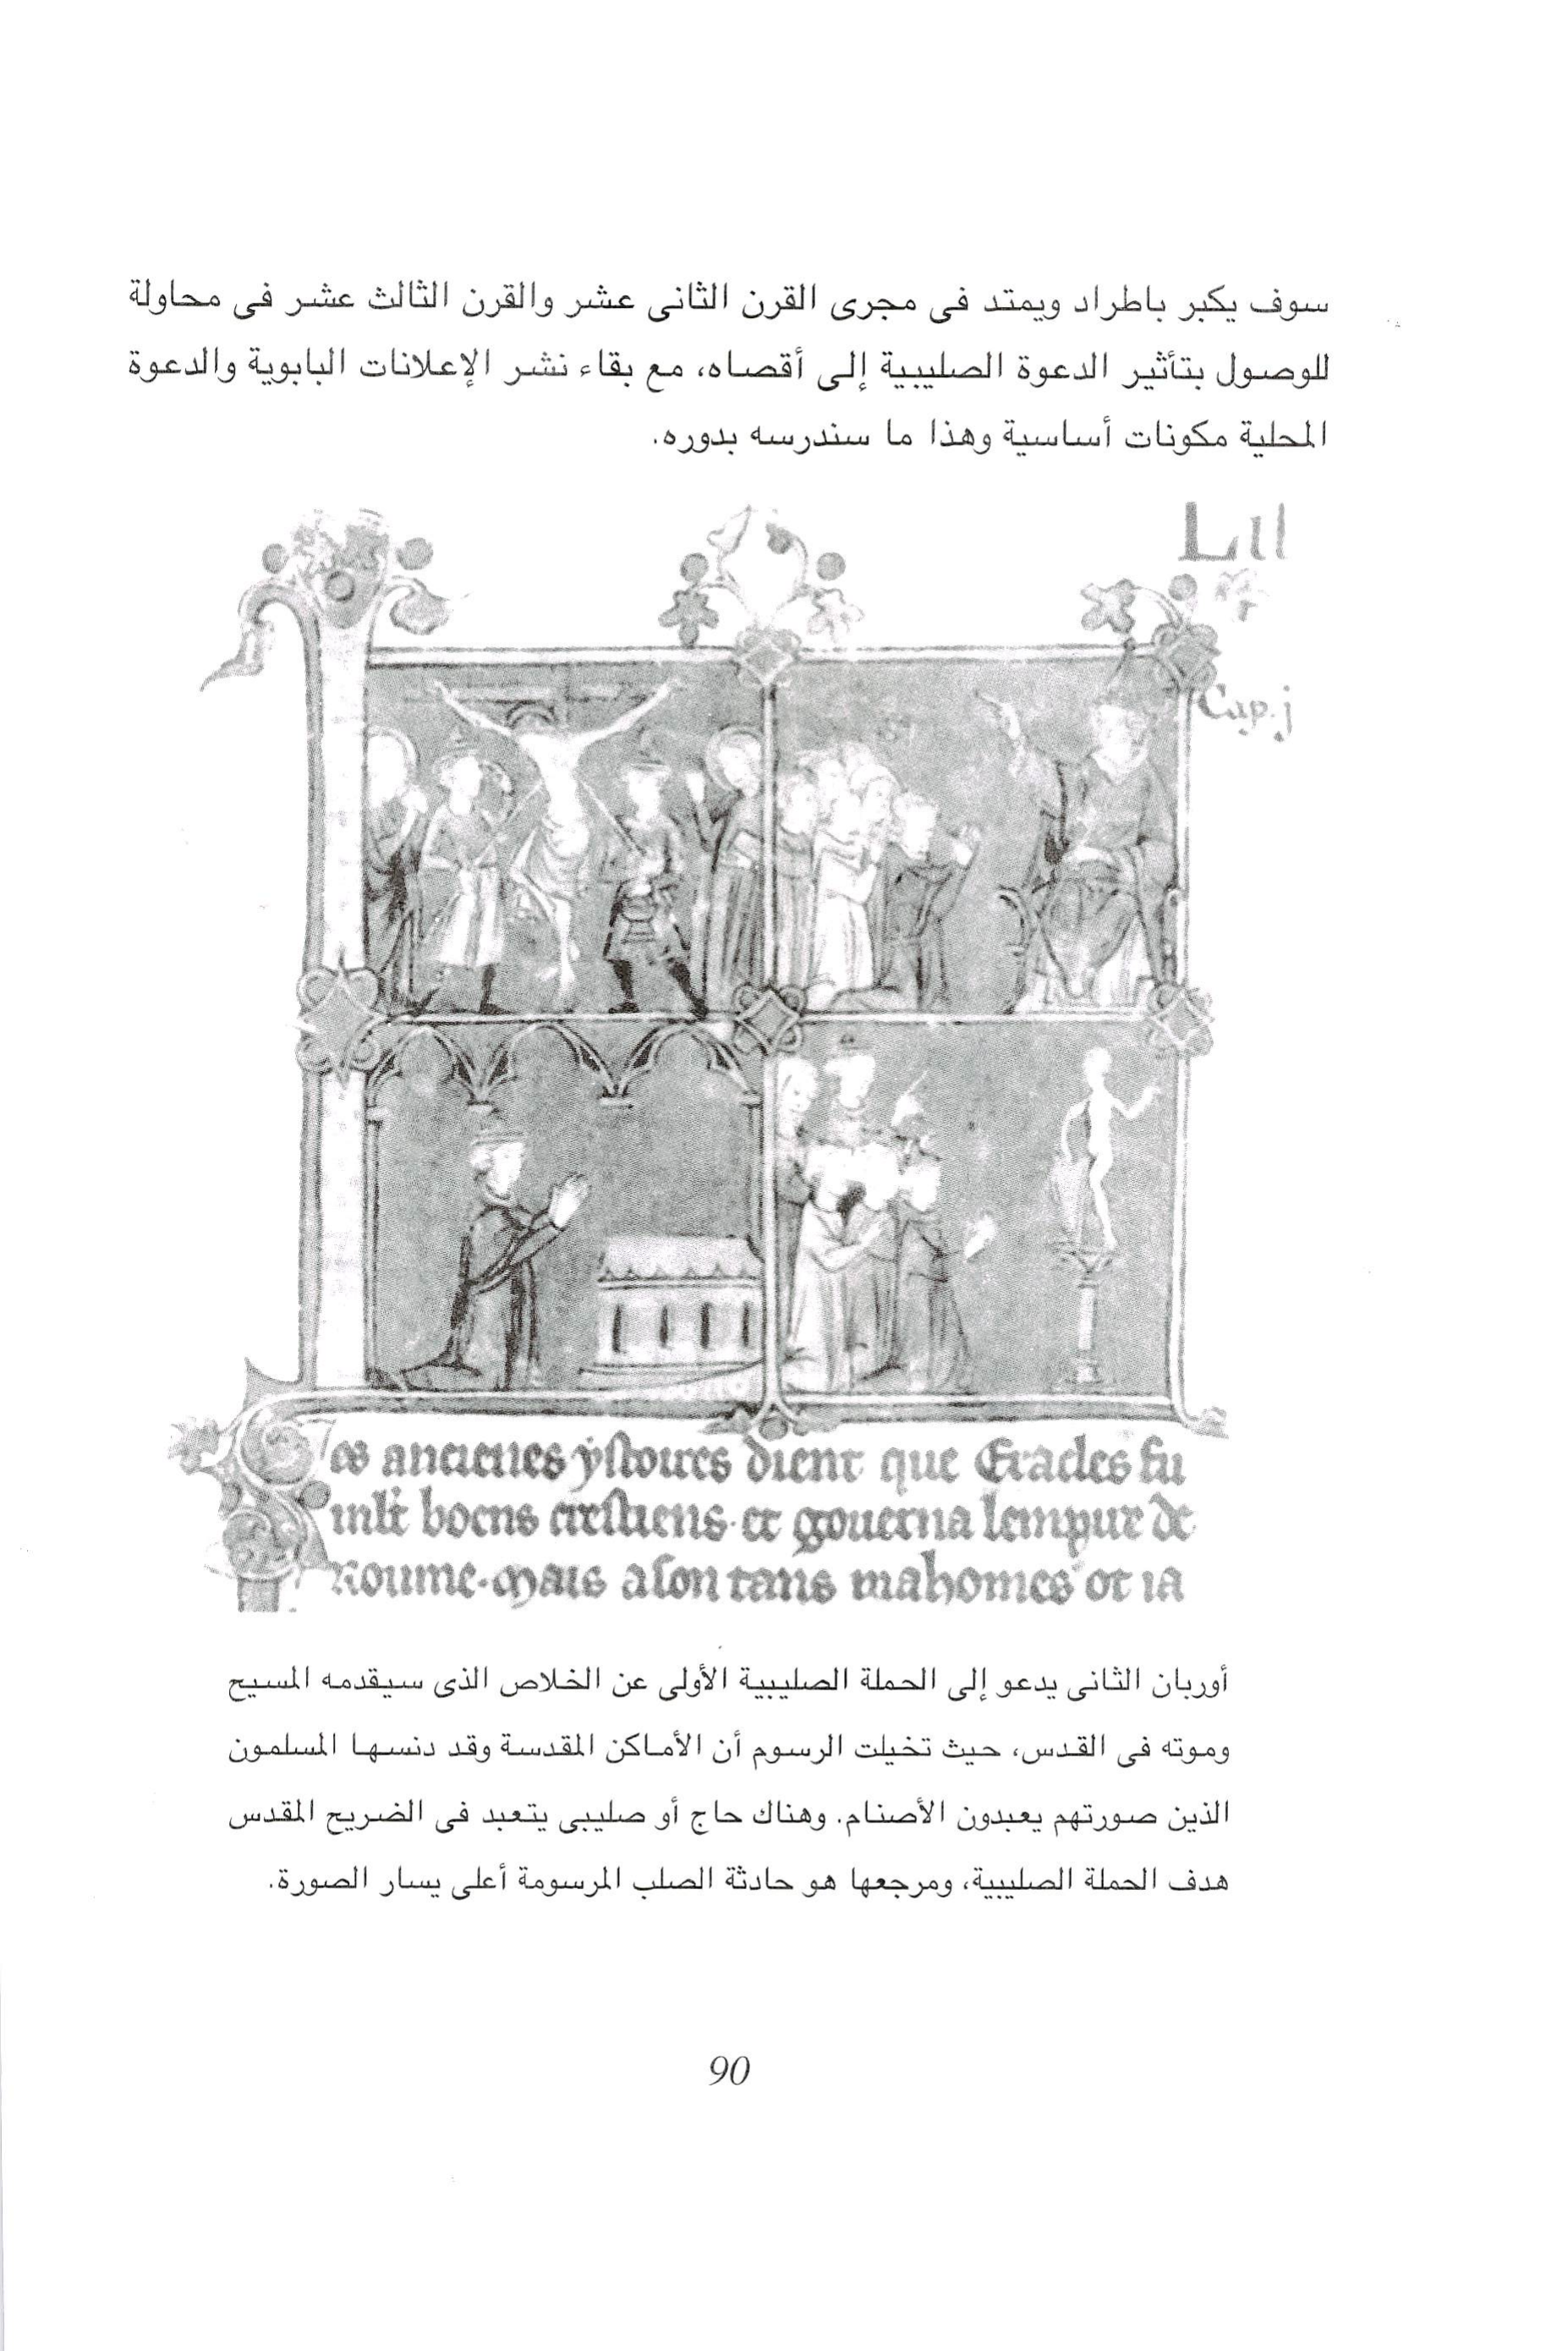 سوف يكبر باطراد ويمتد فى مجرى القرن الثانى عشر والقرن الثالث عشر فى محاولة
للوصول بتأثير الدعوة الصليبية إلى أقصاه، مع بقاء نشر الإعلانات البابوية والدعوة
المحلية مكونات أساسية وهذا ما سندرسه بدوره.
Cap.j
es ancienes ystoires dient que Eracles fu
mlt boens crestiens. et gouerna lempire de
Roume. Mais a son tans mahomes ot ia
أوربان الثانى يدعو إلى الحملة الصليبية الأولى عن الخلاص الذى سيقدمه المسيح
وموته فى القدس، حيث تخيلت الرسوم أن الأماكن المقدسة وقد دنسها المسلمون
الذين صورتهم يعبدون الأصنام. وهناك حاج أو صليبى يتعبد فى الضريح المقدس
هدف الحملة الصليبية، ومرجعها هو حادثة الصلب المرسومة أعلى يسار الصورة.
90